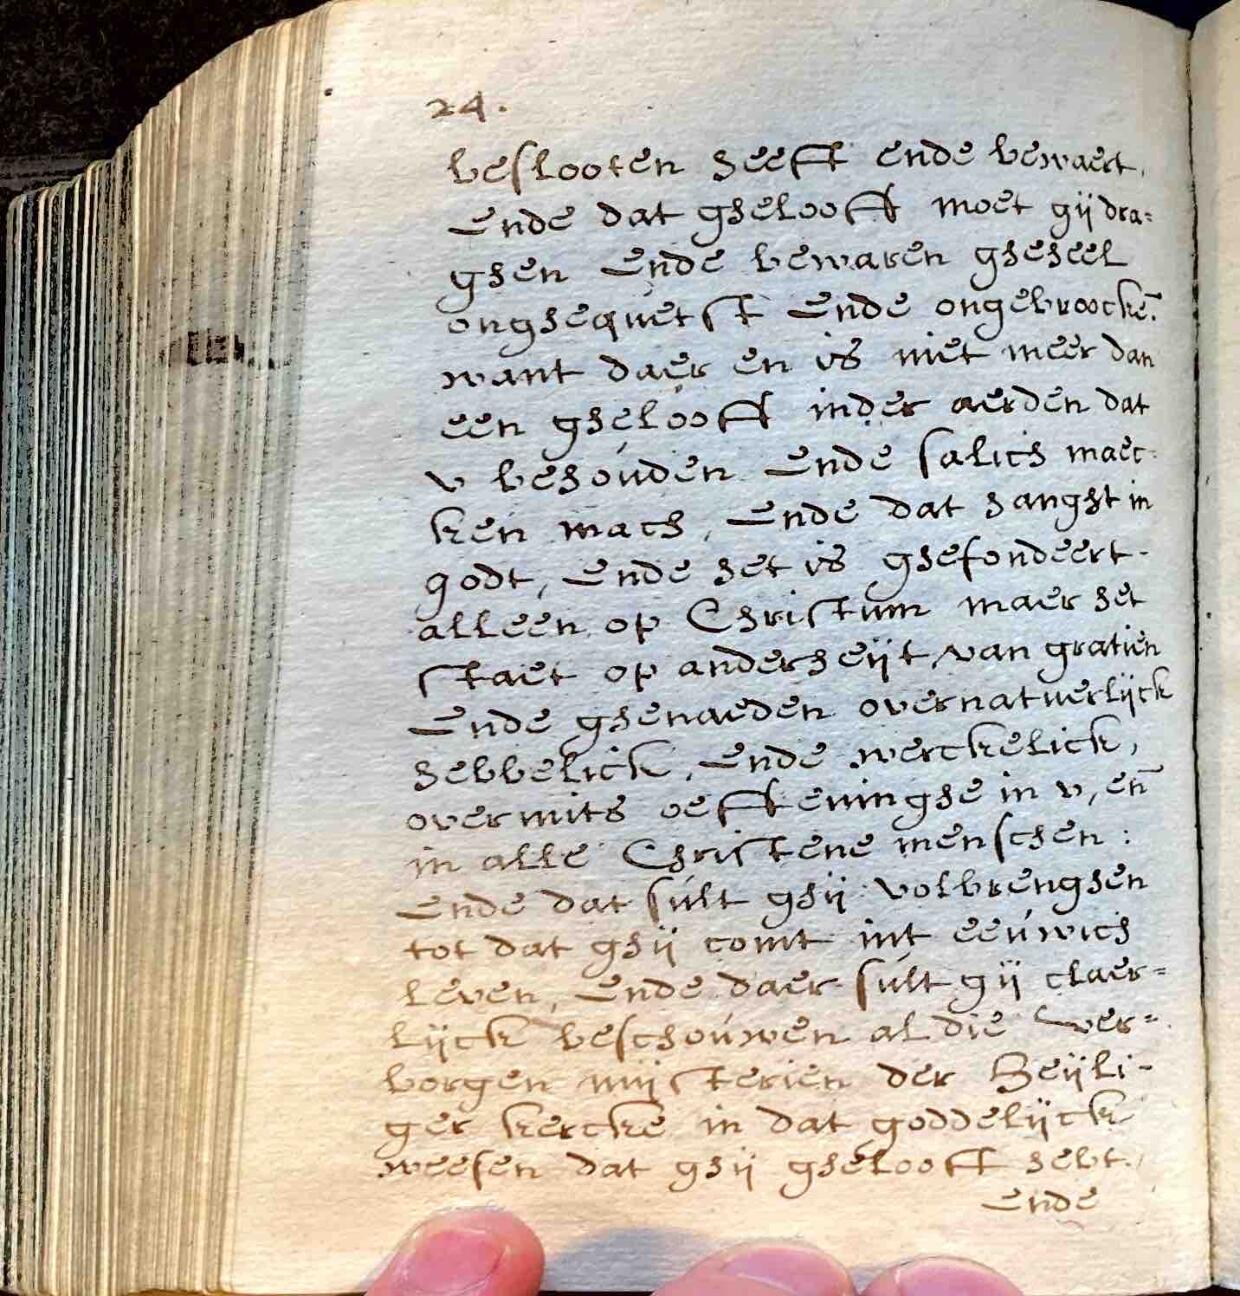 24.
beslooten heefft ende bewaert,
Ende dat gheloofft moet gij dra=
ghen Ende bewaren gheheel
onghequetst Ende ongebroocke̅:
want daer en is niet meer dan
een ghelooff inder aerden dat
v behouden Ende salich maec-
ken mach, Ende dat hanght in
godt, Ende het is ghefondeert
alleen op Christum maer het
staet op anderheijt van gratien
Ende ghenaeden overnatuerlijck
hebbelick, Ende werckelick,
overmits oeffteninghe in v, en̅
in alle Christene menschen:
Ende dat sult ghij volbrenghen
tot dat ghij comt int eeuwich
leven, Ende daer sult gij claer=
lijck beschouwen al die ver=
borgen mijsterien der Heijli-
ger kercke in dat goddelijck
weesen dat ghij ghelooft hebt.
Ende